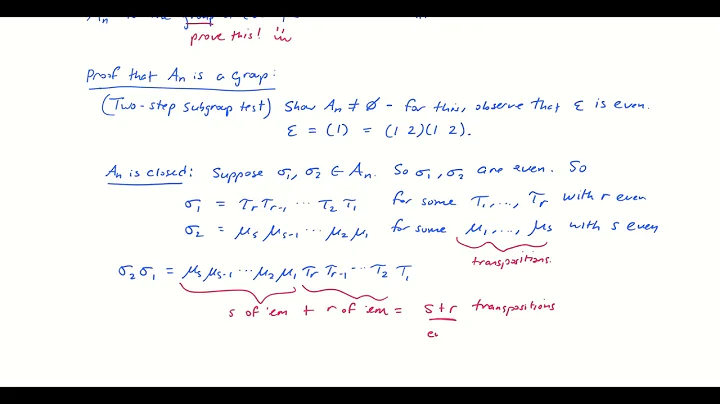 prove this!
Proof that An is a group:
(Two-step subgroup test) Show An ≠ ∅ - for this, observe that ε is even.
ε = (1) = (1 2)(1 2).
An is closed: Suppose σ1, σ2 ∈ An. So σ1, σ2 are even. So
σ1 = τr τr-1 ··· τ2 τ1 for some τ1, ..., τr with r even
σ2 = μs μs-1 ··· μ2 μ1 for some μ1, ..., μs with s even
transpositions.
σ2 σ1 = μs μs-1 ··· μ2 μ1 τr τr-1 ··· τ2 τ1
s of 'em + r of 'em = s+r transpositions
e